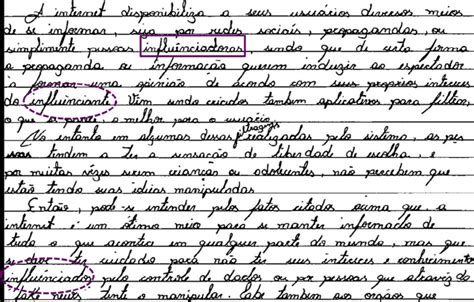 A internet disponibiliza a seus usuários diversos meios
de se informar, seja por redes sociais, propagandas, ou
simplesmente pessoas influênciadoras, sendo que de certa forma
a propaganda ou informação querem induzir ao espectador
a uma opinião de acordo com seus proprios interes
do influênciante. Vem sendo criados tambem aplicativos para filtrar
o que a é o melhor para o usuário
No entanto em algumas dessas filtragens realizadas pelo sistema, as pes
soas tendem a ter a sensação de liberdade de escolha, e
por muitas vêzes serem crianças ou adolecentes, não percebem que
estão tendo suas ideias manipuladas
Então, pode-se intender pelos fatos citados acima que a
internet é um otimo meio para se manter informado de
tudo o que acontece em qualquer parte do mundo, mas que
se deve ter cuidado para não ter seus interesses e conhecimentos
influênciados pelo controle de dados ou por pessoas que através do
tente o manipular. Cabe tambem aos orgãos que